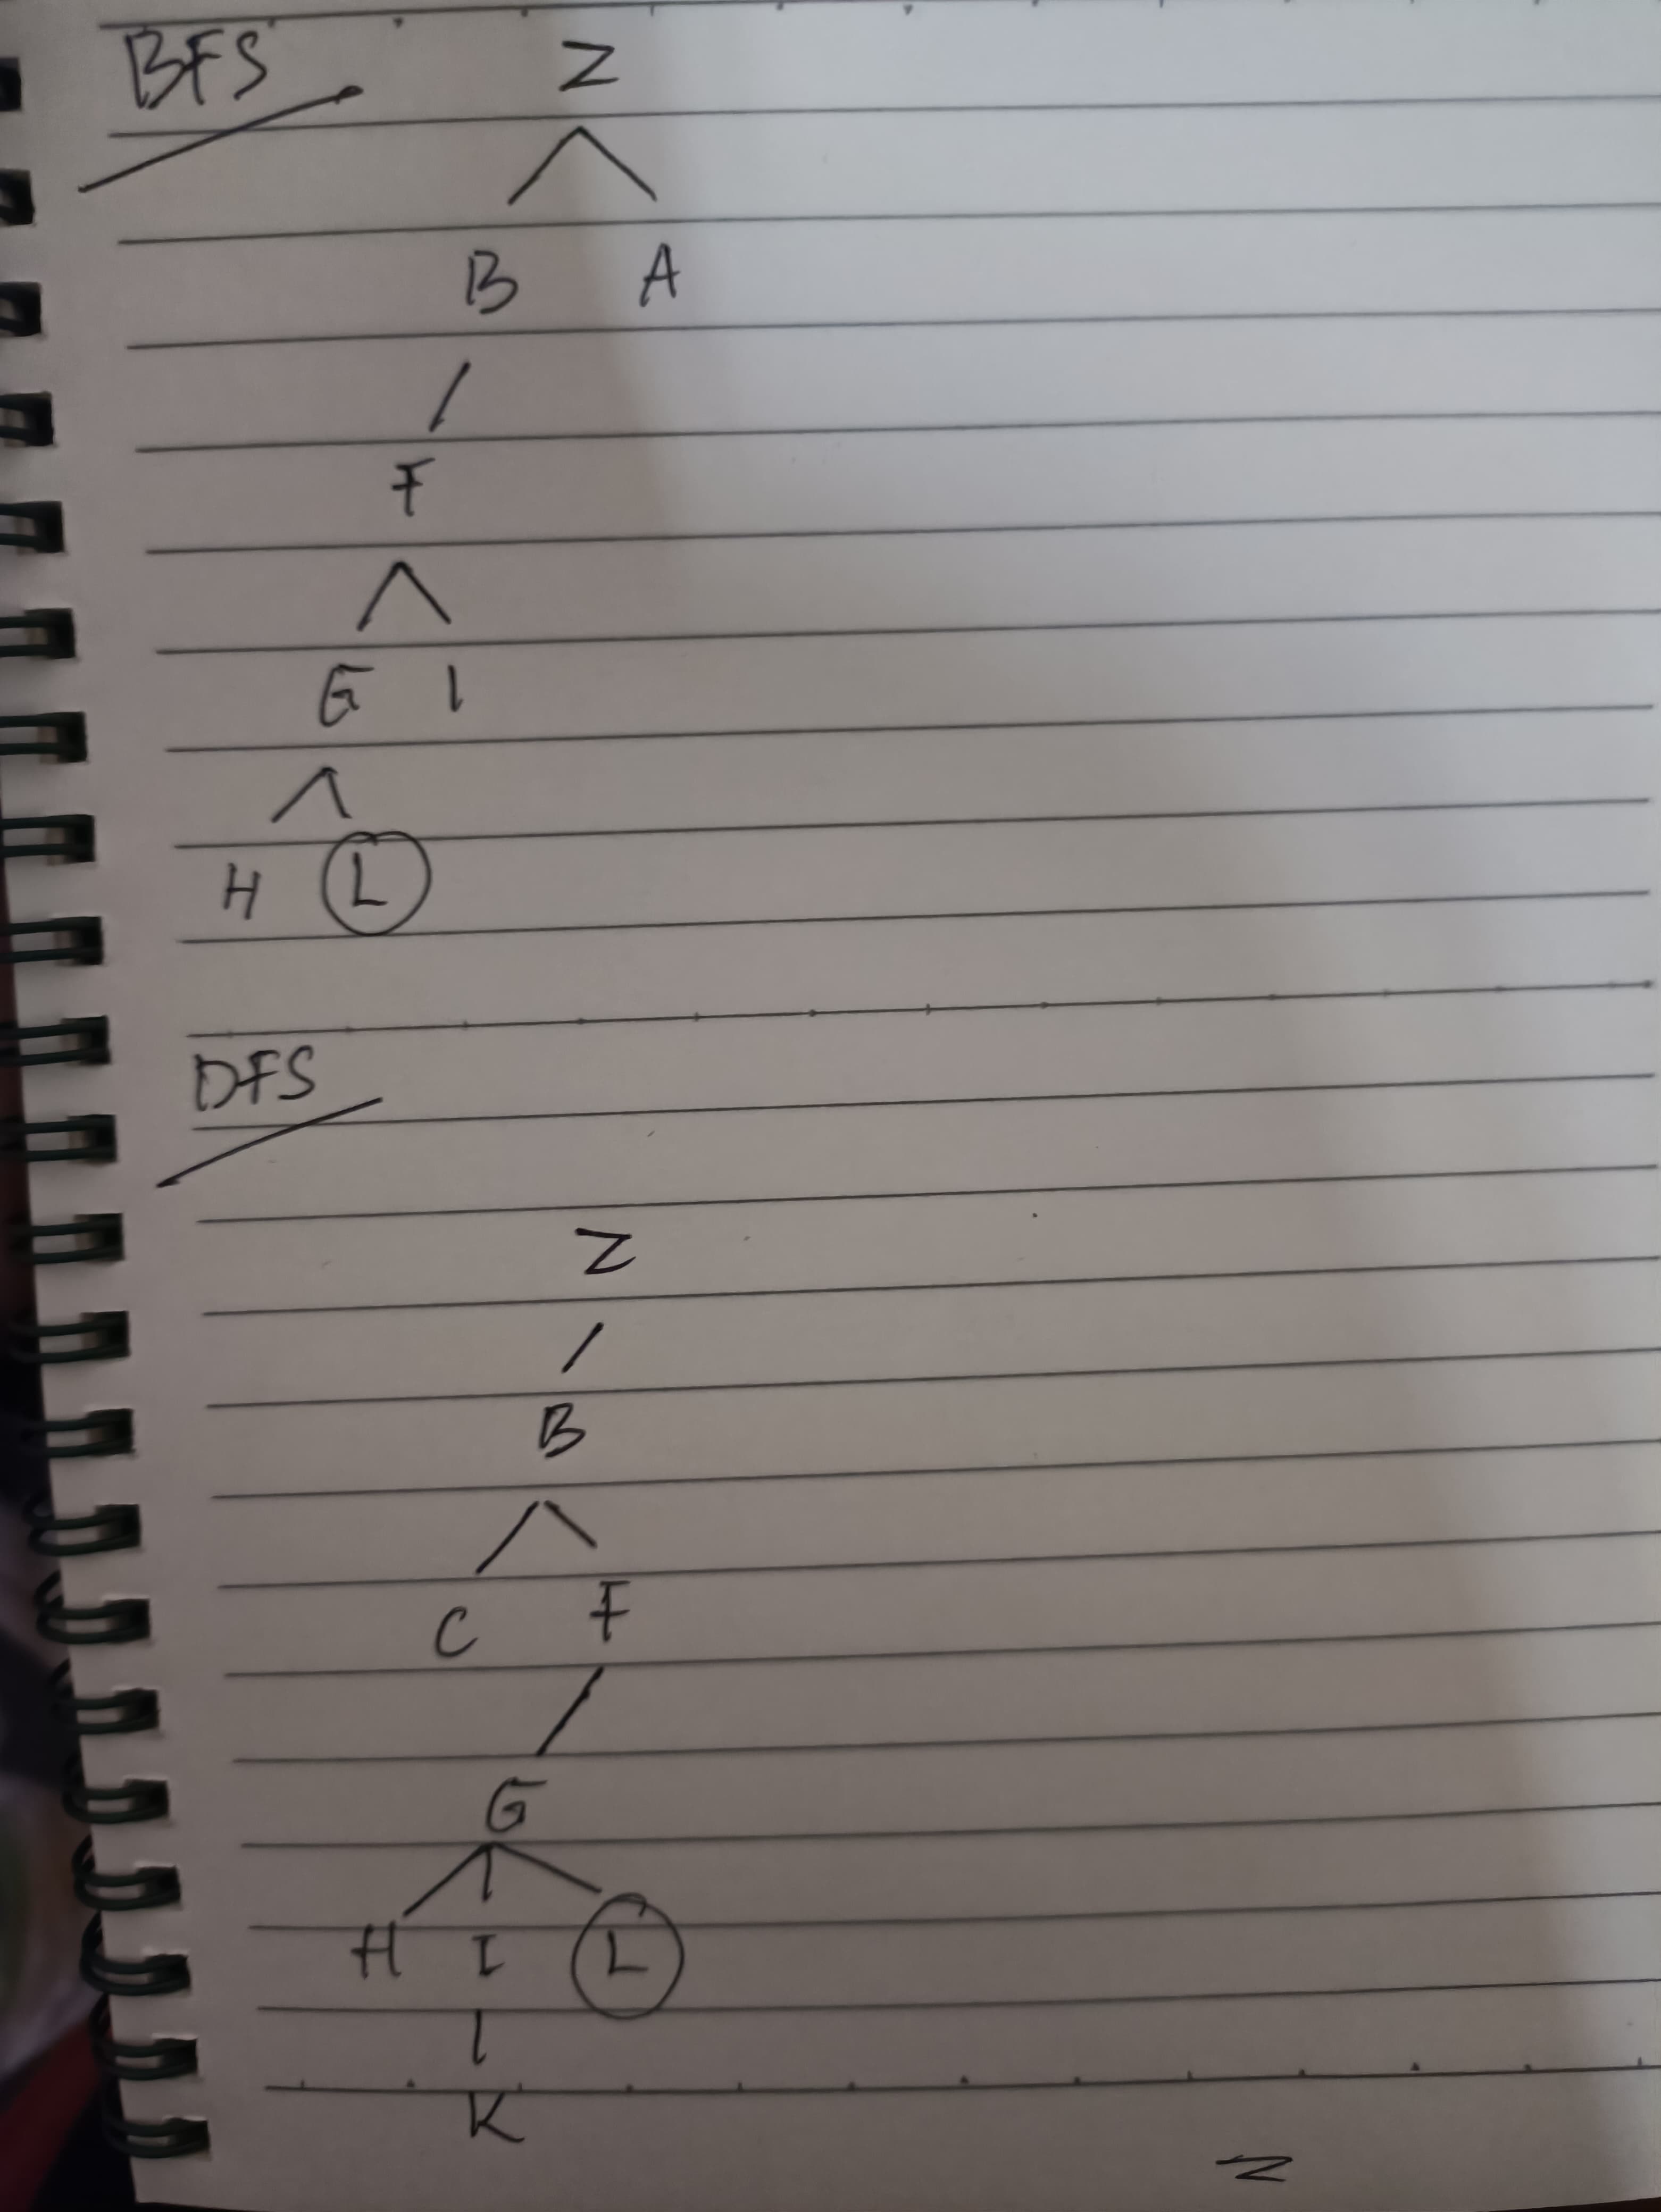 BFS Z
B A
F
G I
H L
DFS
Z
B
C F
G
H I L
K
Z